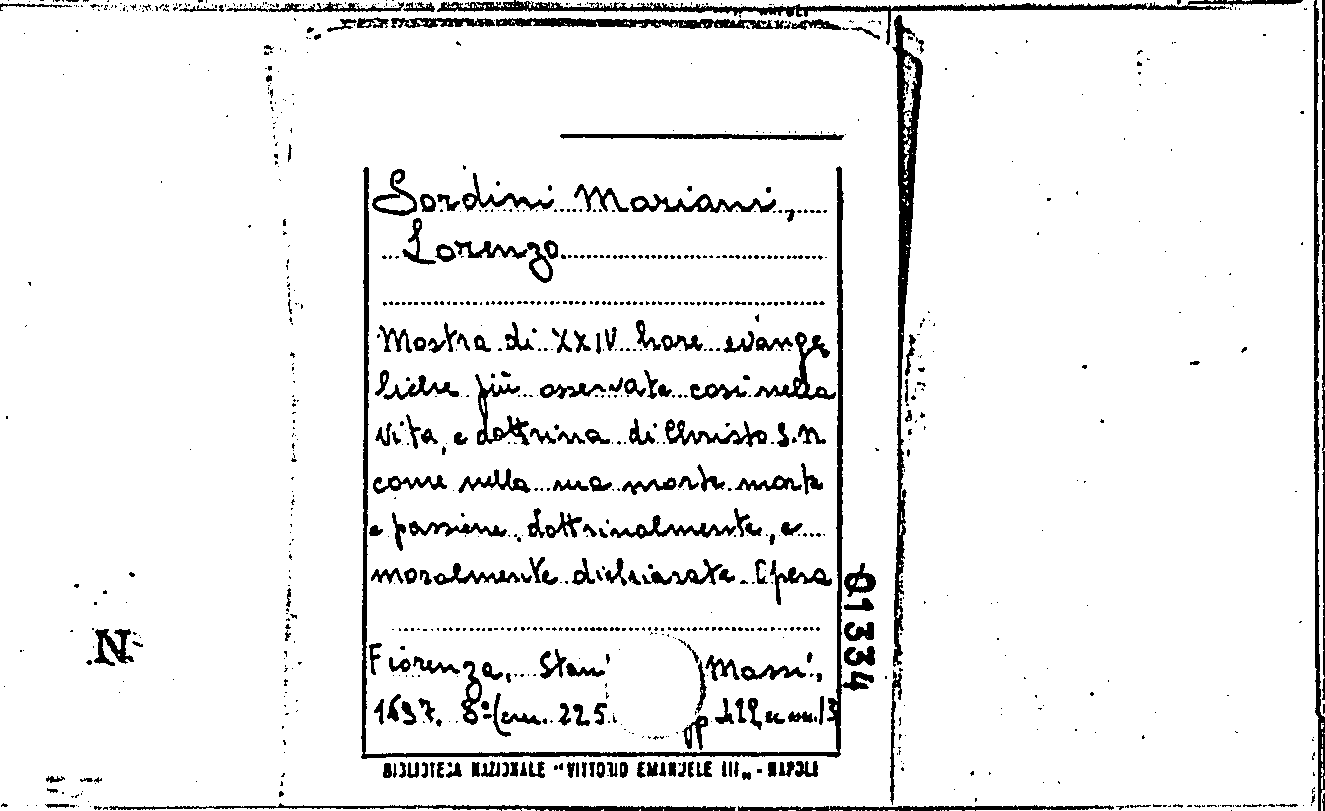 Sordini Mariani,
Lorenzo
Mostra di XXIV hore evange
liche più osservate così nella
vita, e dottrina di Christo S.N
come nella sua morte morte
e passione, dottrinalmente, e
moralmente dichiarate. Opera
Fiorenza, Massi,
8º (cm. 225
01334
N
BIBLIOTECA NAZIONALE "VITTORIO EMANUELE III" - NAPOLI